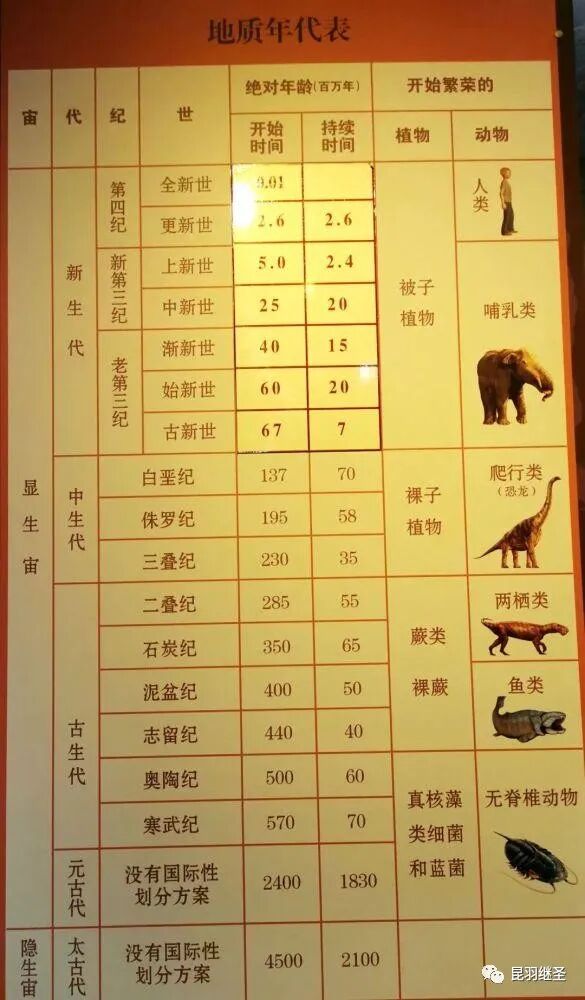 地质年代表
宙 代 纪 世 绝对年龄(百万年) 开始繁荣的
开始时间 持续时间 植物 动物
显生宙 新生代 第四纪 全新世 0.01 被子植物 人类
更新世 2.6 2.6
新第三纪 上新世 5.0 2.4 哺乳类
中新世 25 20
老第三纪 渐新世 40 15
始新世 60 20
古新世 67 7
中生代 白垩纪 137 70 裸子植物 爬行类(恐龙)
侏罗纪 195 58
三叠纪 230 35
古生代 二叠纪 285 55 蕨类 裸蕨 两栖类
石炭纪 350 65
泥盆纪 400 50 鱼类
志留纪 440 40
奥陶纪 500 60 真核藻类细菌和蓝菌 无脊椎动物
寒武纪 570 70
元古代 没有国际性划分方案 2400 1830
隐生宙 太古代 没有国际性划分方案 4500 2100
昆羽继圣